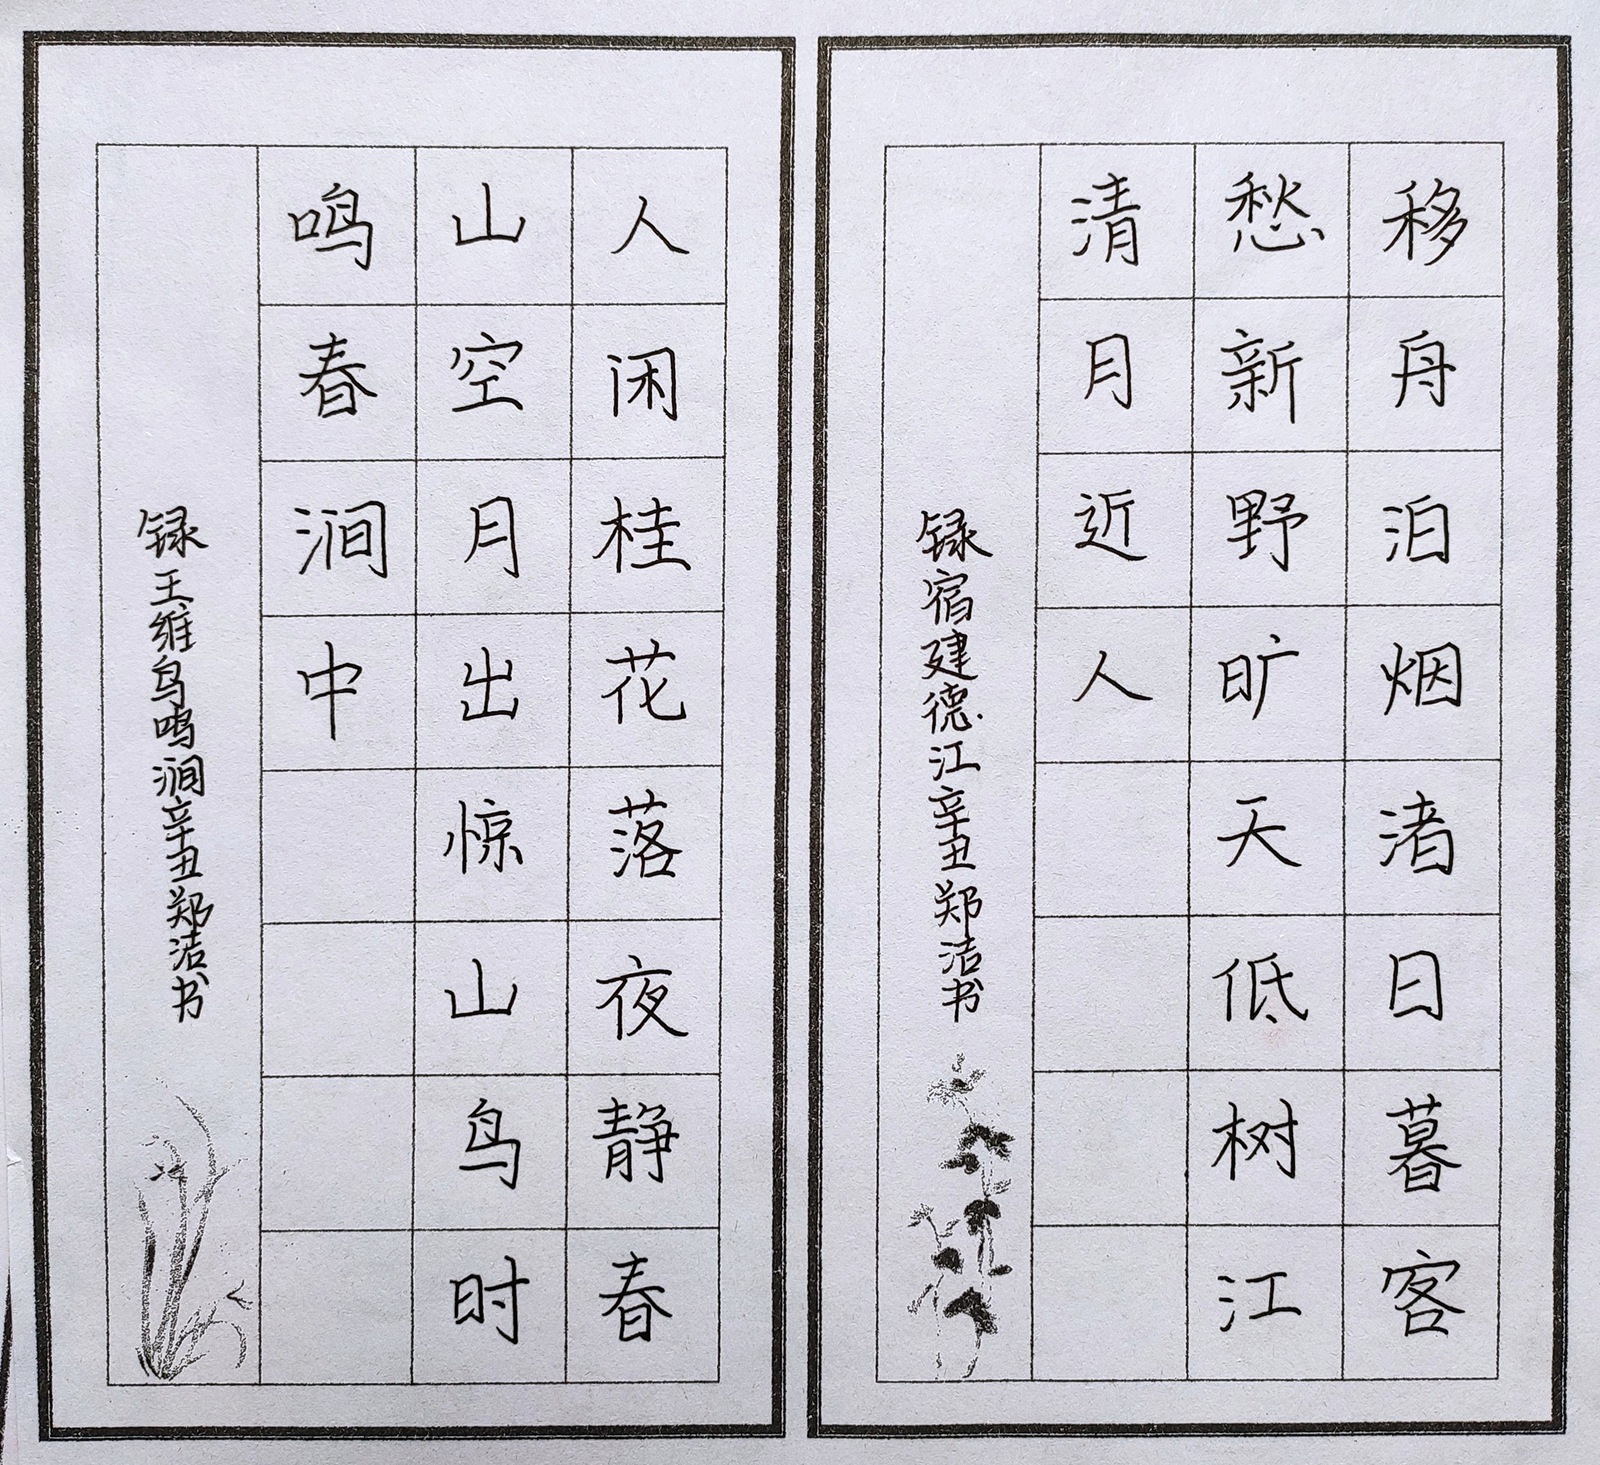 移舟泊烟渚日暮客
愁新野旷天低树江
清月近人
录宿建德江辛丑郑洁书
人闲桂花落夜静春
山空月出惊山鸟时
鸣春涧中
录王维鸟鸣涧辛丑郑洁书